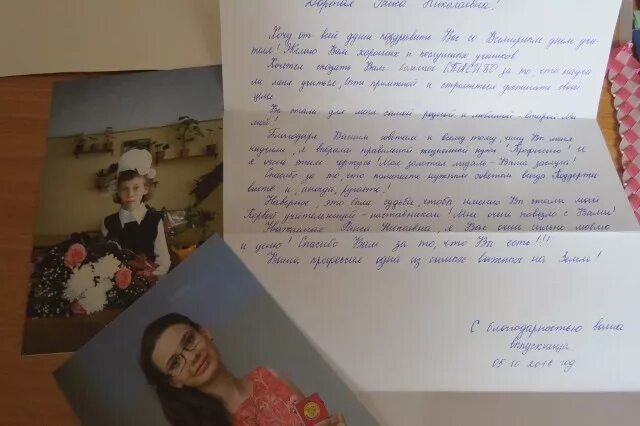 Дорогая Раиса Николаевна!
Хочу от всей души поздравить Вас со Всемирным днем учи-
теля! Желаю Вам хороших и послушных учеников.
Хотела сказать Вам большое СПАСИБО за то, что научи-
ли меня учиться, быть прилежной и стремиться достигать своей
цели.
Вы стали для меня самой родной и любимой - второй Ма-
мой!
Благодаря Вашим советам и всему тому, чему Вы меня
научили, я выбрала правильный жизненный путь! Профессию! И
я очень этим горжусь! Моя золотая медаль - Ваша заслуга!
Спасибо за то, что помогаете нужным советом всегда. Поддержи-
ваете и, иногда, ругаете!
Наверное, это была судьба, чтобы именно Вы стали моей
первой учительницей - наставником! Мне очень повезло с Вами!
Уважаемая Раиса Николаевна, я Вас очень сильно люблю
и ценю! Спасибо Вам за то, что Вы есть!!!
Ваша профессия одна из самых важных на Земле!
С благодарностью ваша
выпускница
05 10 2016 год